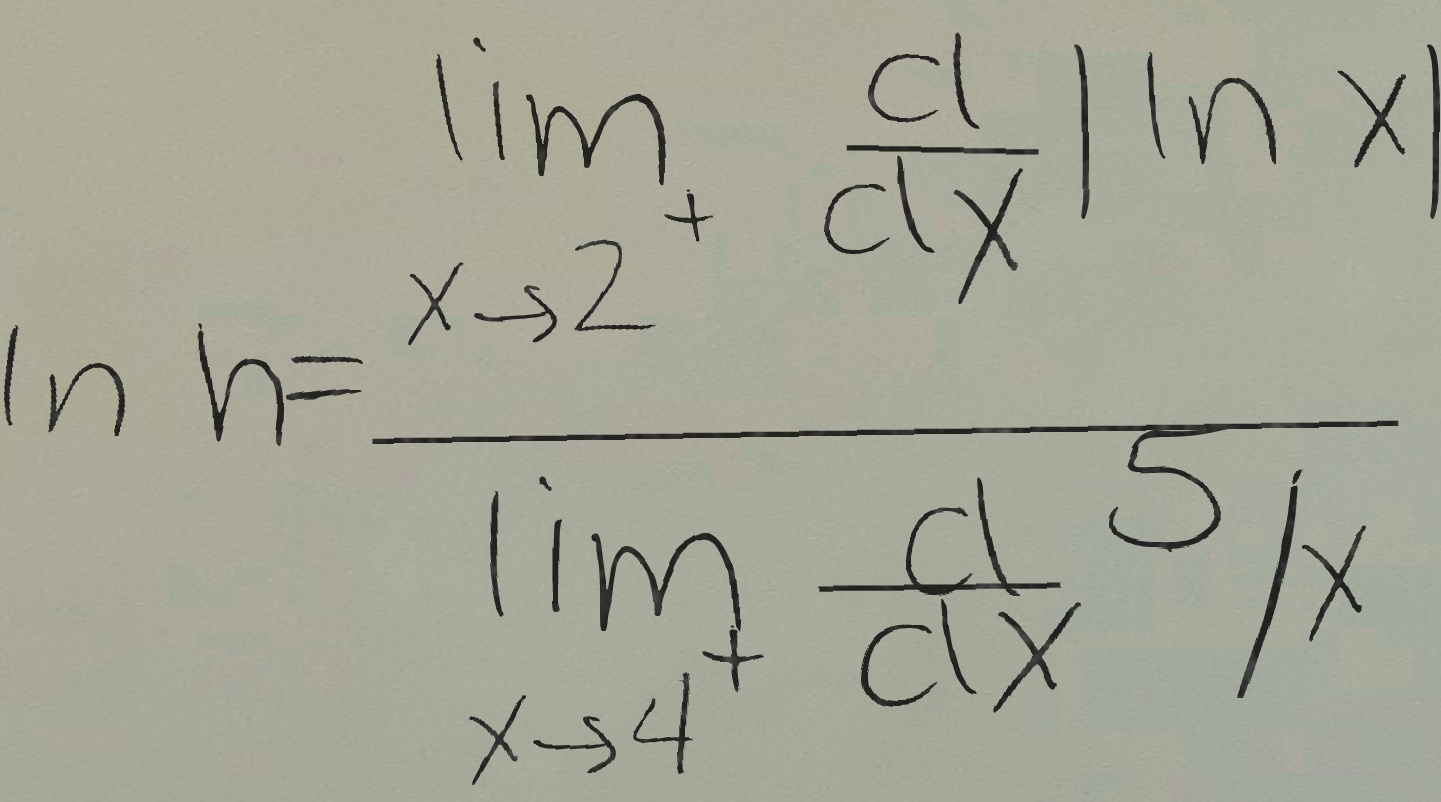 ln h = \frac{\lim_{x \to 2^+} \frac{d}{dx} |\ln x|}{\lim_{x \to 4^+} \frac{d}{dx} 5/x}